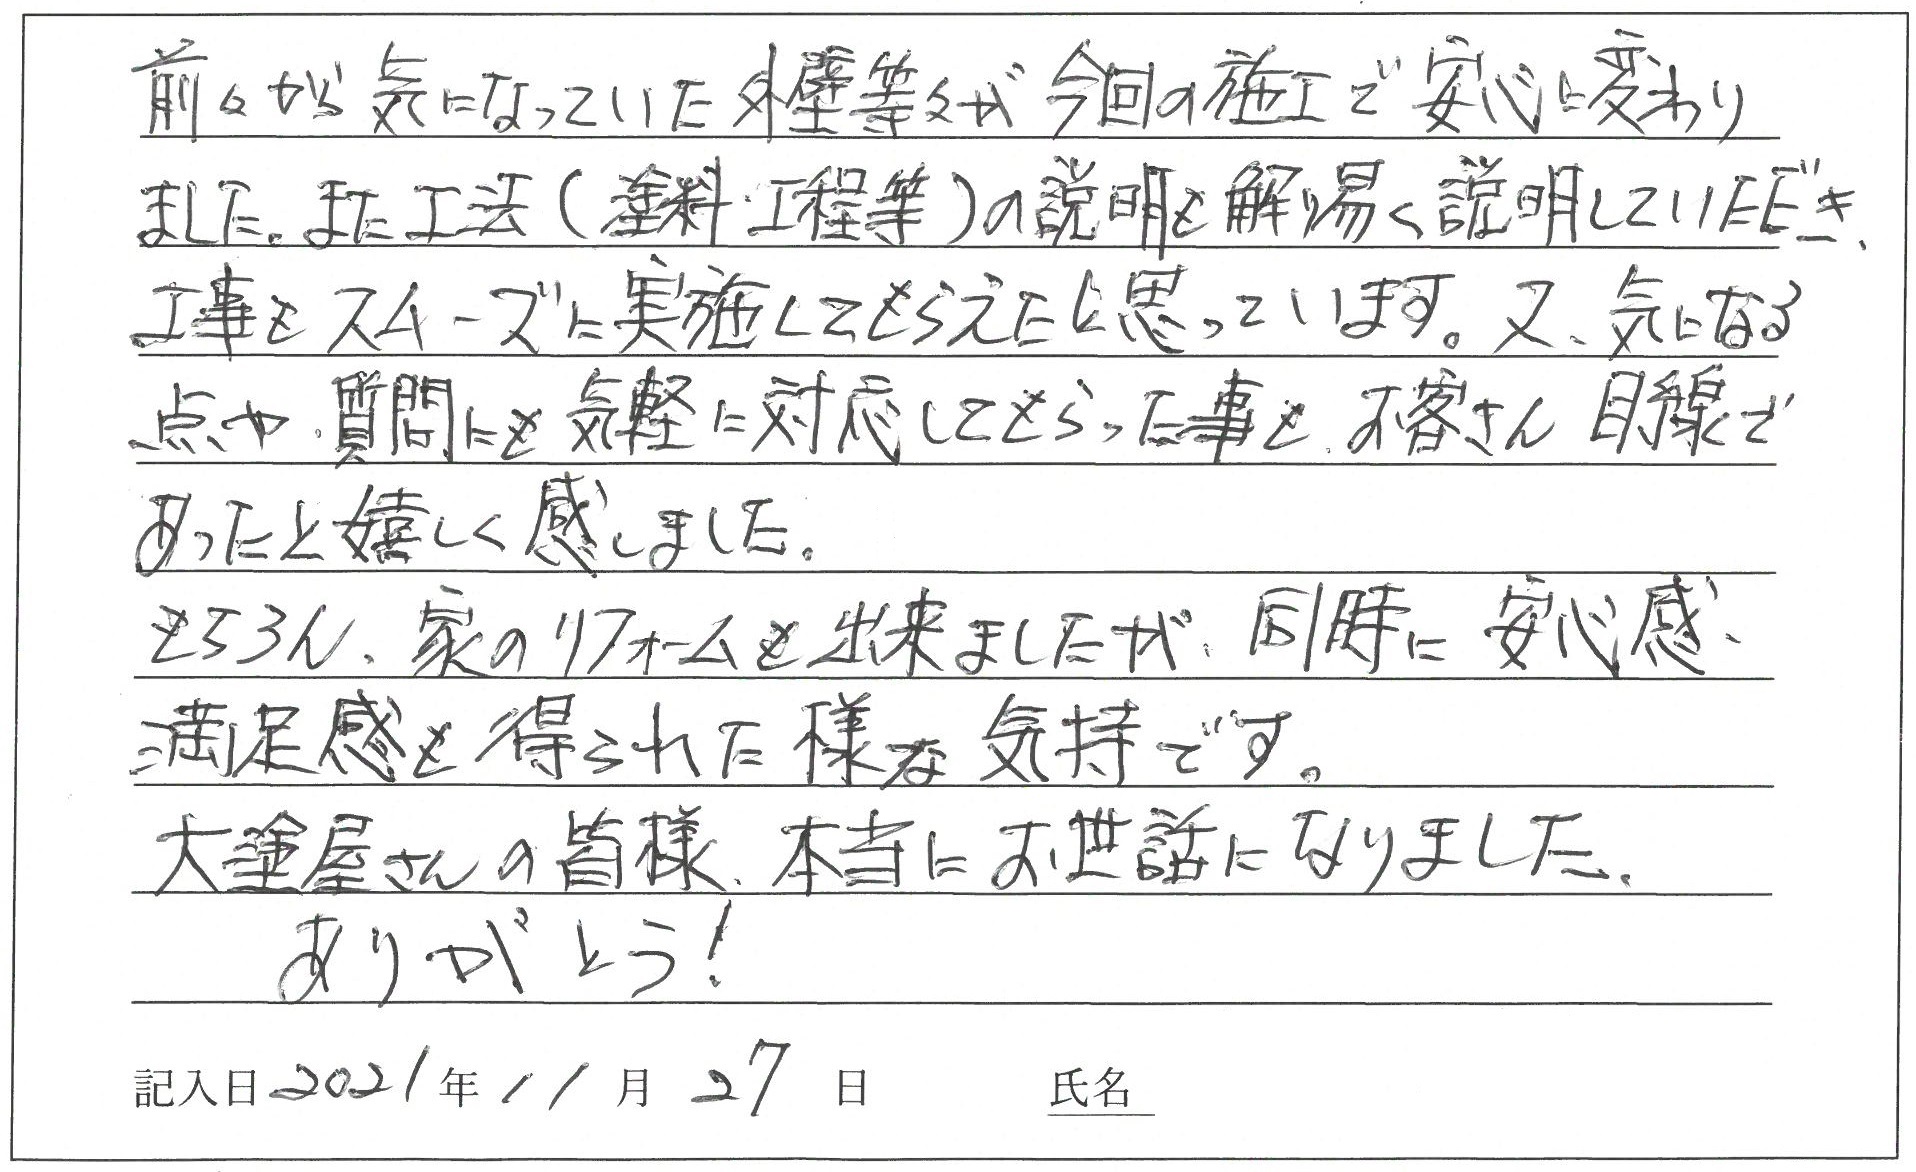 前々から気になっていた外壁等々が今回の施工で安心に変わり
ました。また工法(塗料・工程等)の説明も解り易く説明していただき、
工事もスムーズに実施してもらえたと思っています。又、気になる
点や、質問にも気軽に対応してもらった事も、お客さん目線で
あったと嬉しく感しました。
もちろん、家のリフォームも出来ましたが、同時に安心感、
満足感も得られた様な気持です。
大塗屋さんの皆様、本当にお世話になりました、
ありがとう!
記入日 2021年 11月 27日 氏名